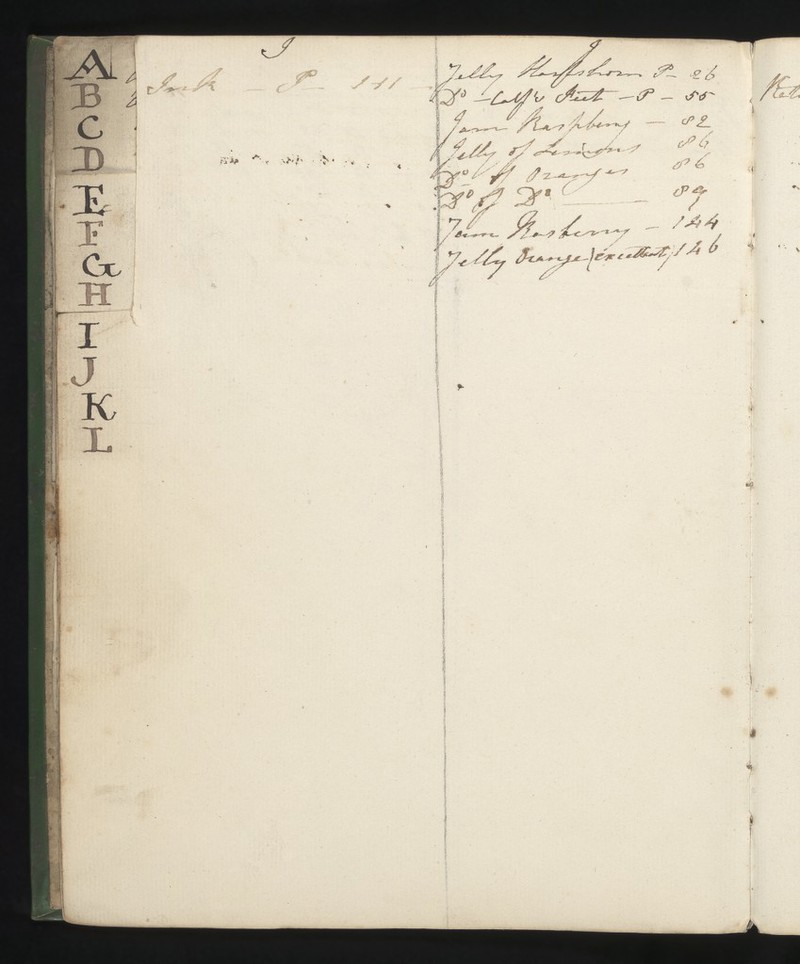 A
B
C
D
E
F
G
H
I
J
K
L
I
Ink - P - 111
J
Jelly Hartshorn P - 26
Do - Calf's Feet - P - 55
Jam Raspberry - 82
Jelly of Lemons 86
Do of Oranges 86
Do of Do 89
Jam Rasberry - 144
Jelly Orange (excellent) 146